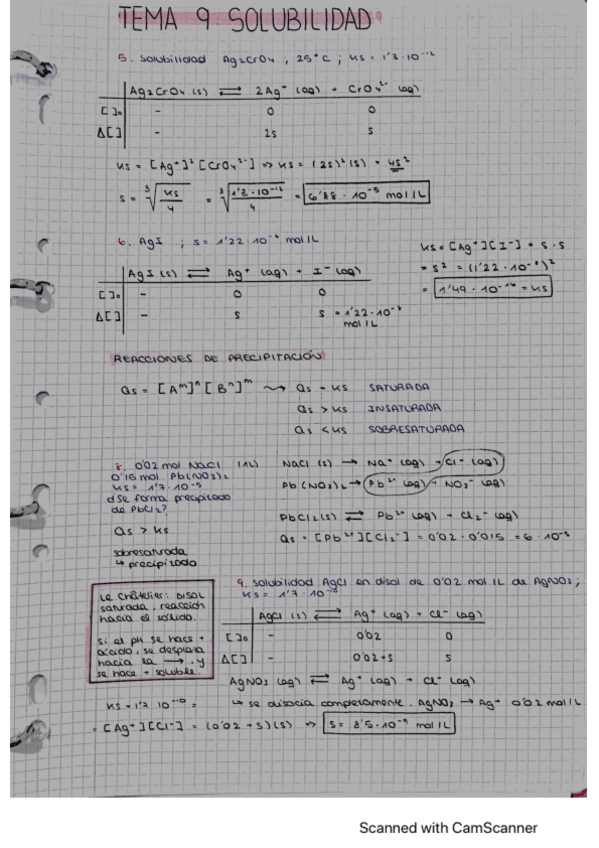 TEMA 9: SOLUBILIDAD
5. Solubilidad Ag2CrO4 ; 25°C ; Ks = 1'3·10⁻¹²
Ag2CrO4 (s) ⇄ 2Ag⁺ (aq) + CrO4²⁻ (aq)
[ ]₀ - 0 0
Δ[ ] - 2s s
Ks = [Ag⁺]²[CrO4²⁻] ⇒ Ks = (2s)²(s) = 4s²
s = ∛(Ks/4) = ∛(1'3·10⁻¹²/4) = 6'88·10⁻⁵ mol/L
6. AgI ; s = 1'22·10⁻⁸ mol/L
AgI (s) ⇄ Ag⁺ (aq) + I⁻ (aq)
[ ]₀ - 0 0
Δ[ ] - s s = 1'22·10⁻⁸ mol/L
Ks = [Ag⁺][I⁻] = s·s
= s² = (1'22·10⁻⁸)²
= 1'49·10⁻¹⁶ = Ks
REACCIONES DE PRECIPITACIÓN
Qs = [Aᵐ]ⁿ[Bⁿ]ᵐ ⇝ Qs = Ks SATURADA
Qs > Ks INSATURADA
Qs < Ks SOBRESATURADA
8. 0'02 mol NaCl (1L)
0'15 mol Pb(NO3)2
Ks = 1'7·10⁻⁵
d se forma precipitado
de PbCl2?
Qs > Ks
sobresaturada
↳ precipitado
NaCl (s) → Na⁺ (aq) + Cl⁻ (aq)
Pb(NO3)2 → Pb²⁺ (aq) + NO3⁻ (aq)
PbCl2 (s) ⇄ Pb²⁺ (aq) + Cl2⁻ (aq)
Qs = [Pb²⁺][Cl2⁻] = 0'02·0'015 = 6·10⁻⁵
Le Châtelier: Disol
saturada, reacción
hacia el sólido.
Si el pH se hace +
ácido, se desplaza
hacia la →, y
se hace + soluble.
9. Solubilidad AgCl en disol de 0'02 mol/L de AgNO3;
Ks = 1'7·10⁻¹⁰
AgCl (s) ⇄ Ag⁺ (aq) + Cl⁻ (aq)
[ ]₀ - 0'02 0
Δ[ ] - 0'02+s s
AgNO3 (aq) ⇄ Ag⁺ (aq) + Cl⁻ (aq)
↳ se disocia completamente. AgNO3 → Ag⁺ 0'02 mol/L
Ks = 1'7·10⁻¹⁰ =
= [Ag⁺][Cl⁻] = (0'02+s)(s) ⇒ s = 8'5·10⁻⁹ mol/L
Scanned with CamScanner